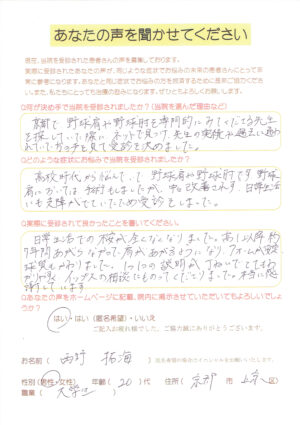 あなたの声を聞かせてください
現在、当院を受診された患者さんの声を募集しております。
実際に受診されたあなたの声が、同じような症状でお悩みの未来の患者さんにとって非
常に参考になります。あなたと同じ症状でお悩みの方を救済するために是非ご協力くださ
い。また、私たちにとっても治療の励みになります。ぜひともよろしくお願いします。
Q何が決め手で当院を受診されましたか？(当院を選んだ理由など)
京都で野球肩や野球肘を専門的にみてくださる先生
を探していた際に、ネットで見つけ、先生の実績や過去に通わ
れていた方の声を見て受診を決めました。
Qどのような症状にお悩みで当院を受診されましたか？
高校時代から悩んでいて野球肩や野球肘です。野球
肩においては手術もしましたが、中々改善されず、日常生活
にも支障がでていたため受診をしました。
Q実際に受診されて良かったことを書いてください。
日常生活での痛みが全くなくなりました。あと1以降約
7年間あがらなかった肩があがるようになりフォームが改善
球速も上がりました。1つ1つの説明が丁寧でとても
わかり易くイップスの相談にものってくださりました。本当に感
謝しています。
Qあなたの声をホームページに記載、院内に掲示させていただいてもよろしいでしょ
うか？
はい・はい(匿名希望)・いいえ
ご記入お疲れ様でした。ご協力誠にありがとうございます。
お名前( 西野 拓海 )
性別(男性・女性) 年齢( 20 )代 住所( 京都 市 上京 区)
職業( 大学生 )